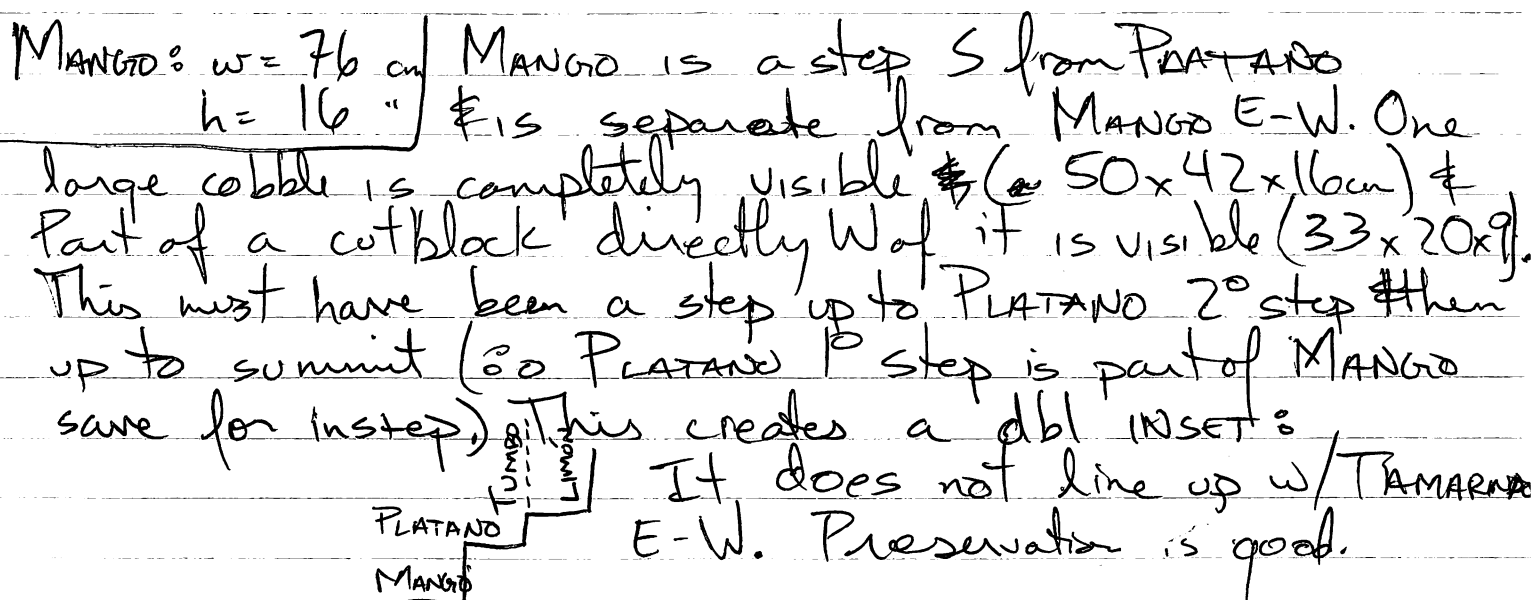 MANGO: w = 76 cm
h = 16 "
MANGO is a step S from PLATANO
& is separate from MANGO E-W. One
large cobble is completely visible (~ 50 x 42 x 16cm) &
Part of a cutblock directly W of it is visible (33 x 20 x 9).
This must have been a step up to PLATANO 2° step then
up to summit (so PLATANO 1° step is part of MANGO
save for instep.) This creates a dbl INSET:
It does not line up w/ TAMARINA
E-W. Preservation is good.
LIMON
PLATANO
MANGO